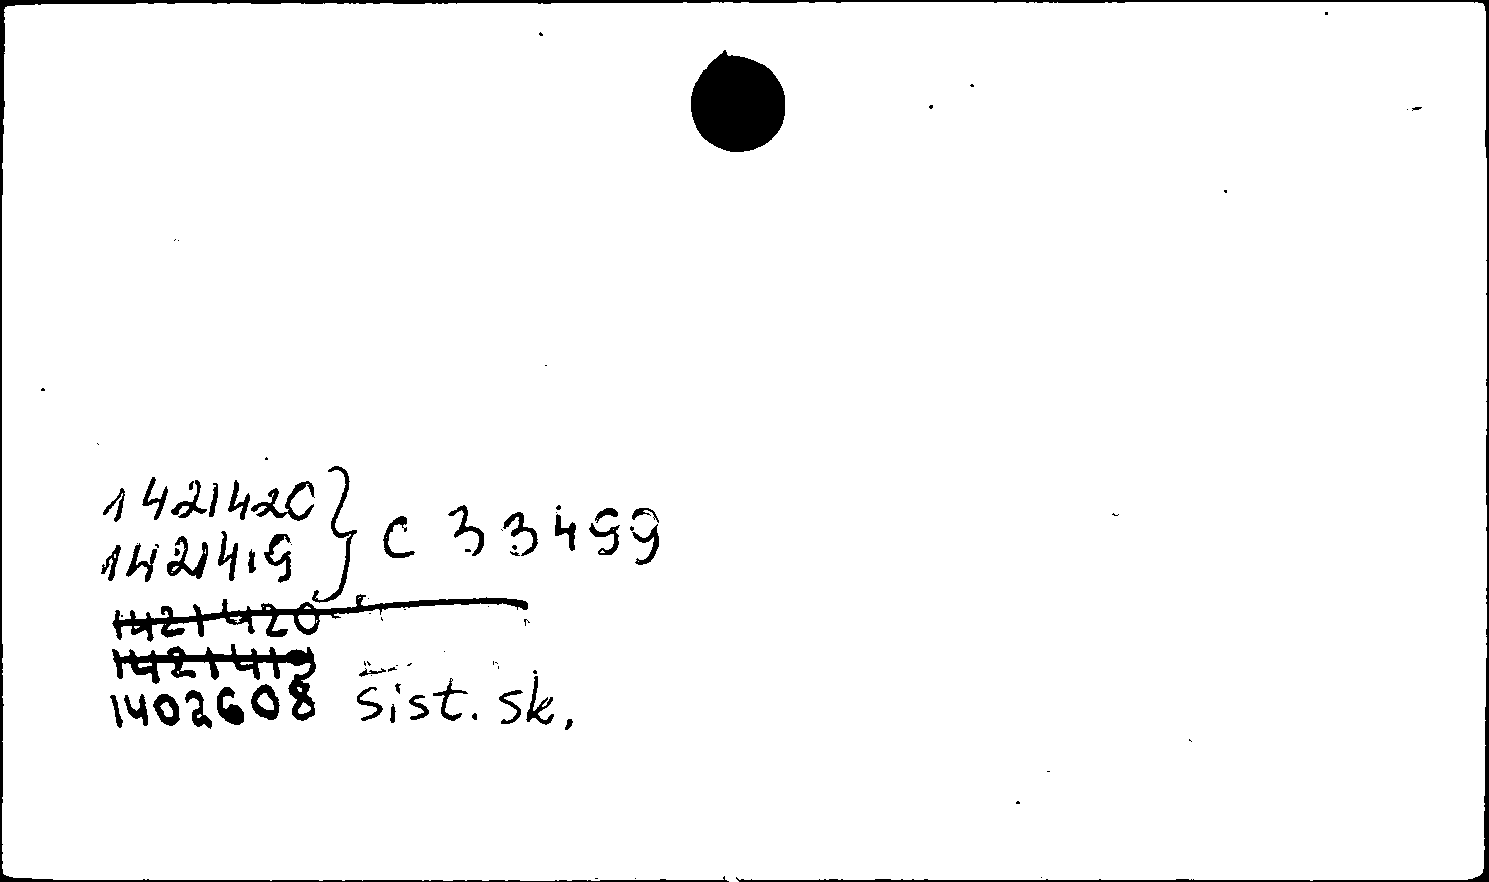 1421420 } C 33499
1421419
1421420
1421419
1402608 Sist. sk.